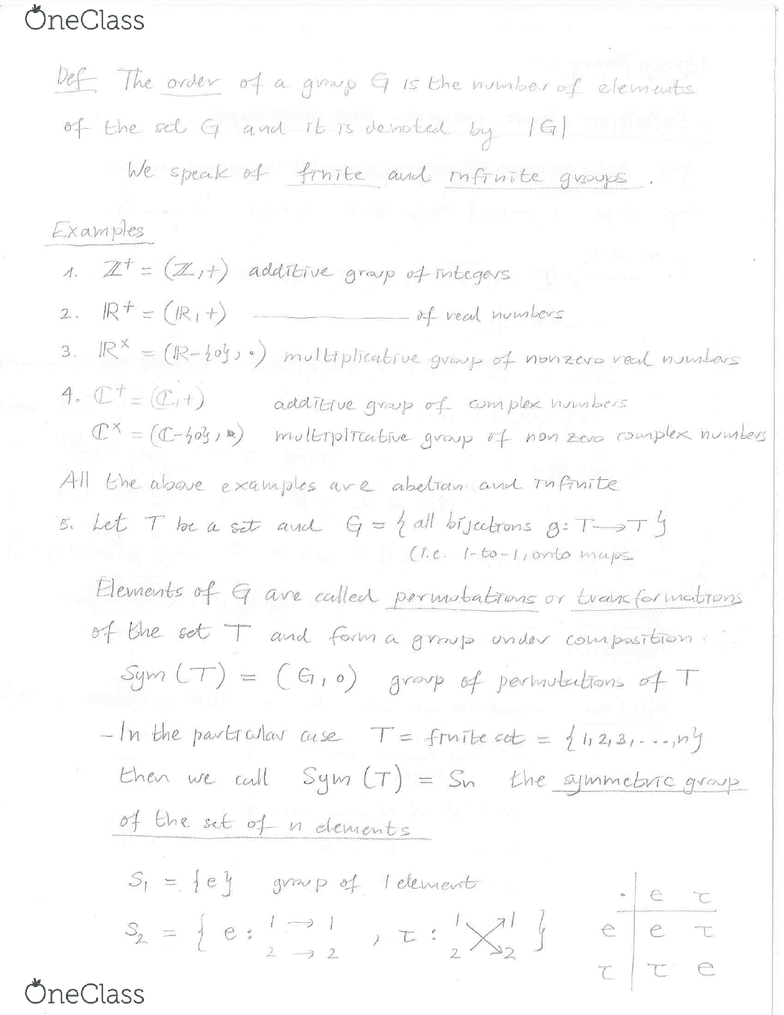 OneClass
Def The order of a group G is the number of elements
of the set G and it is denoted by |G|
We speak of finite and infinite groups.
Examples
1. ℤ+ = (ℤ,+) additive group of integers
2. ℝ+ = (ℝ,+) ———— of real numbers
3. ℝ× = (ℝ-{0}, •) multiplicative group of nonzero real numbers
4. ℂ+ = (ℂ,+) additive group of complex numbers
ℂ× = (ℂ-{0}, •) multiplicative group of non zero complex numbers
All the above examples are abelian and infinite
5. Let T be a set and G = { all bijections g: T→T }
(i.e. 1-to-1, onto maps
Elements of G are called permutations or transformations
of the set T and form a group under composition.
Sym (T) = (G, ∘) group of permutations of T
- In the particular case T = finite set = {1,2,3,...,n}
then we call Sym (T) = Sn the symmetric group
of the set of n elements
S1 = {e} group of 1 element
S2 = { e: 1 → 1 , τ: 1 1 }
2 → 2 2 2
· e τ
e e τ
τ τ e
OneClass